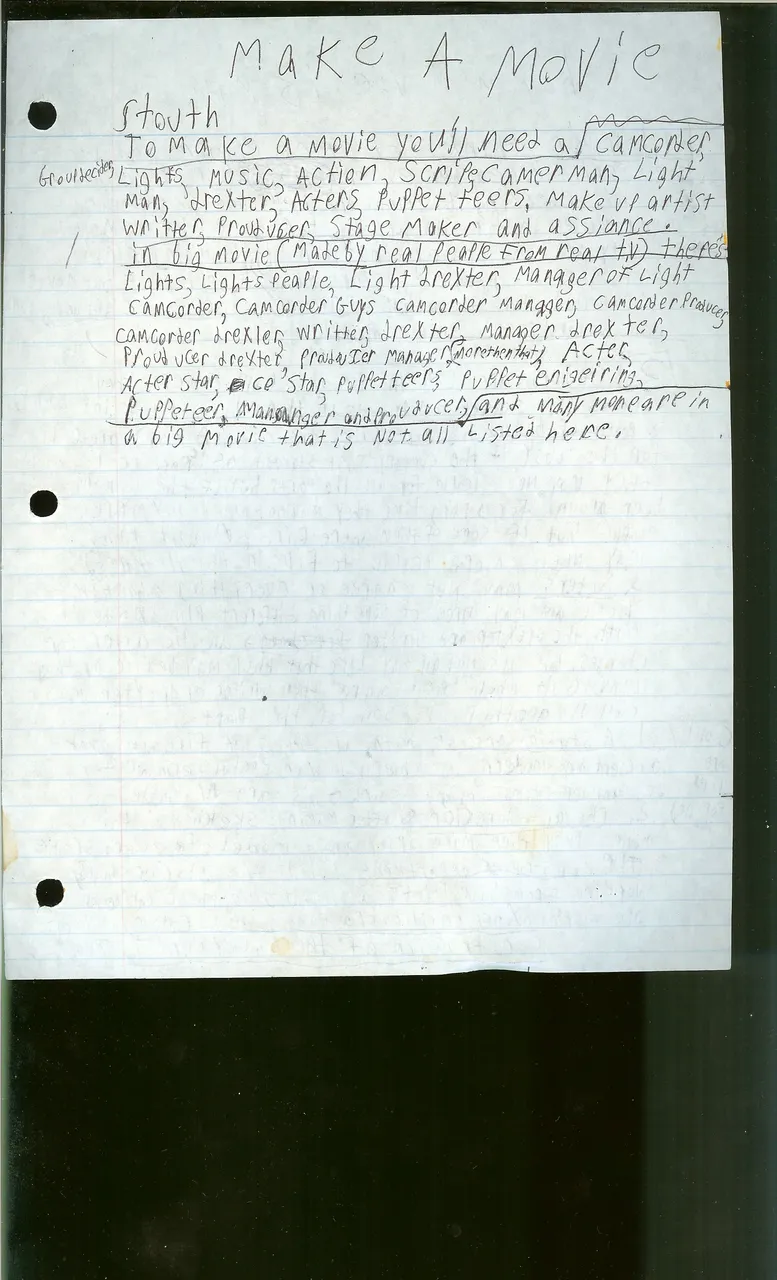 Make A Movie
Stouth
To make a movie you'll need a camcorder,
Lights, Music, Action, Scripe, Camer Man, Light
Man, drexter, Acters, Puppet teers, Make up artist
Writter, Prouducer, Stage Maker and assiance.
in big movie (Made by real Peaple From real t.v) there's
Lights, Lights Peaple, Light drexter, Manager of Light
Camcorder, Camcorder Guys camcorder Mangger, camcorder Producer,
camcorder drexler, Writter, drexter, Manager drexter,
Prouducer drexter, Producier Manager, (morethenthat), Acter,
Acter star, co star, Puppetteers, Puppet enigeiring,
Puppeteer, Mananger and Prouducer, and Many more are in
a big Movie that is Not all Listed here.